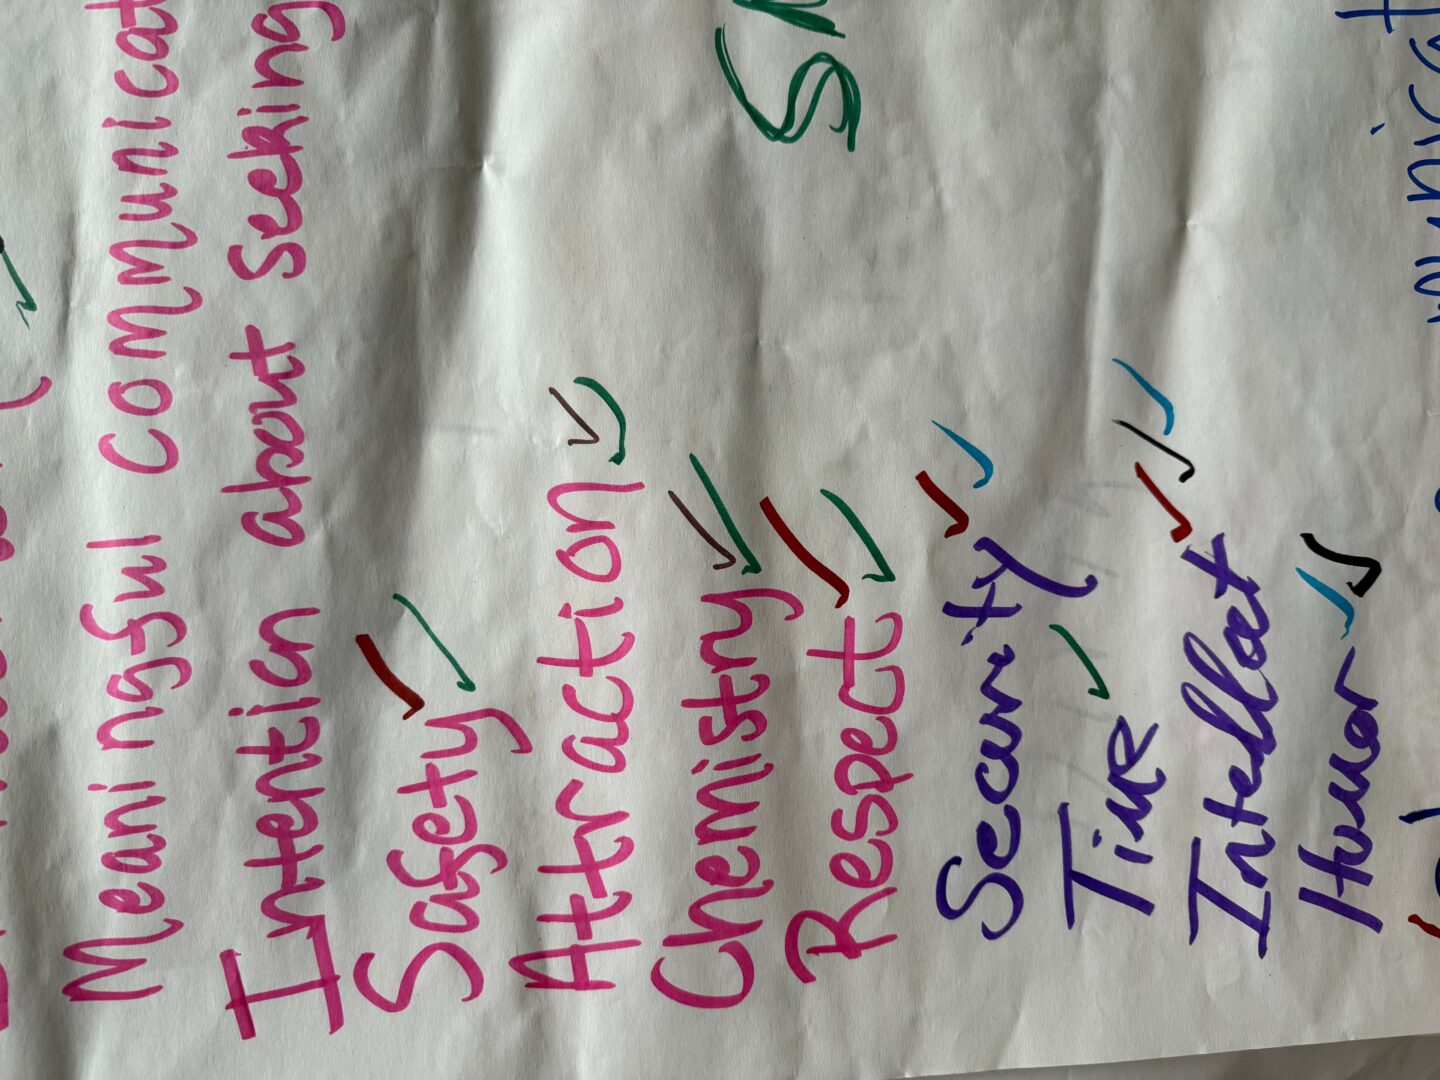 Meaningful communicat
Intention about Seeking
Safety ✓✓
Attraction ✓✓
Chemistry ✓✓
Respect ✓✓
Security ✓✓
Time ✓
Intellect ✓✓✓
Humor ✓✓